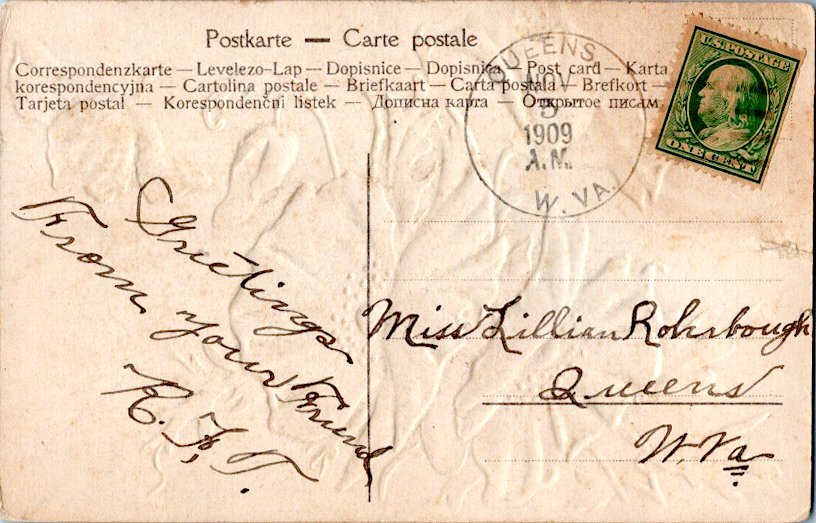 Postkarte — Carte postale
Correspondenzkarte — Levelezo-Lap — Dopisnice — Dopisnica — Post card — Karta
korespondencyjna — Cartolina postale — Briefkaart — Carta postala — Brefkort —
Tarjeta postal — Korespondenčni listek — Дописна карта — Открытое писам
QUEENS
NOV
5
1909
A.M.
W. VA.
U.S. POSTAGE
ONE CENT
Greetings
From your Friend
K. F. T.
Miss Lillian Rohrbough
Queens
W. Va